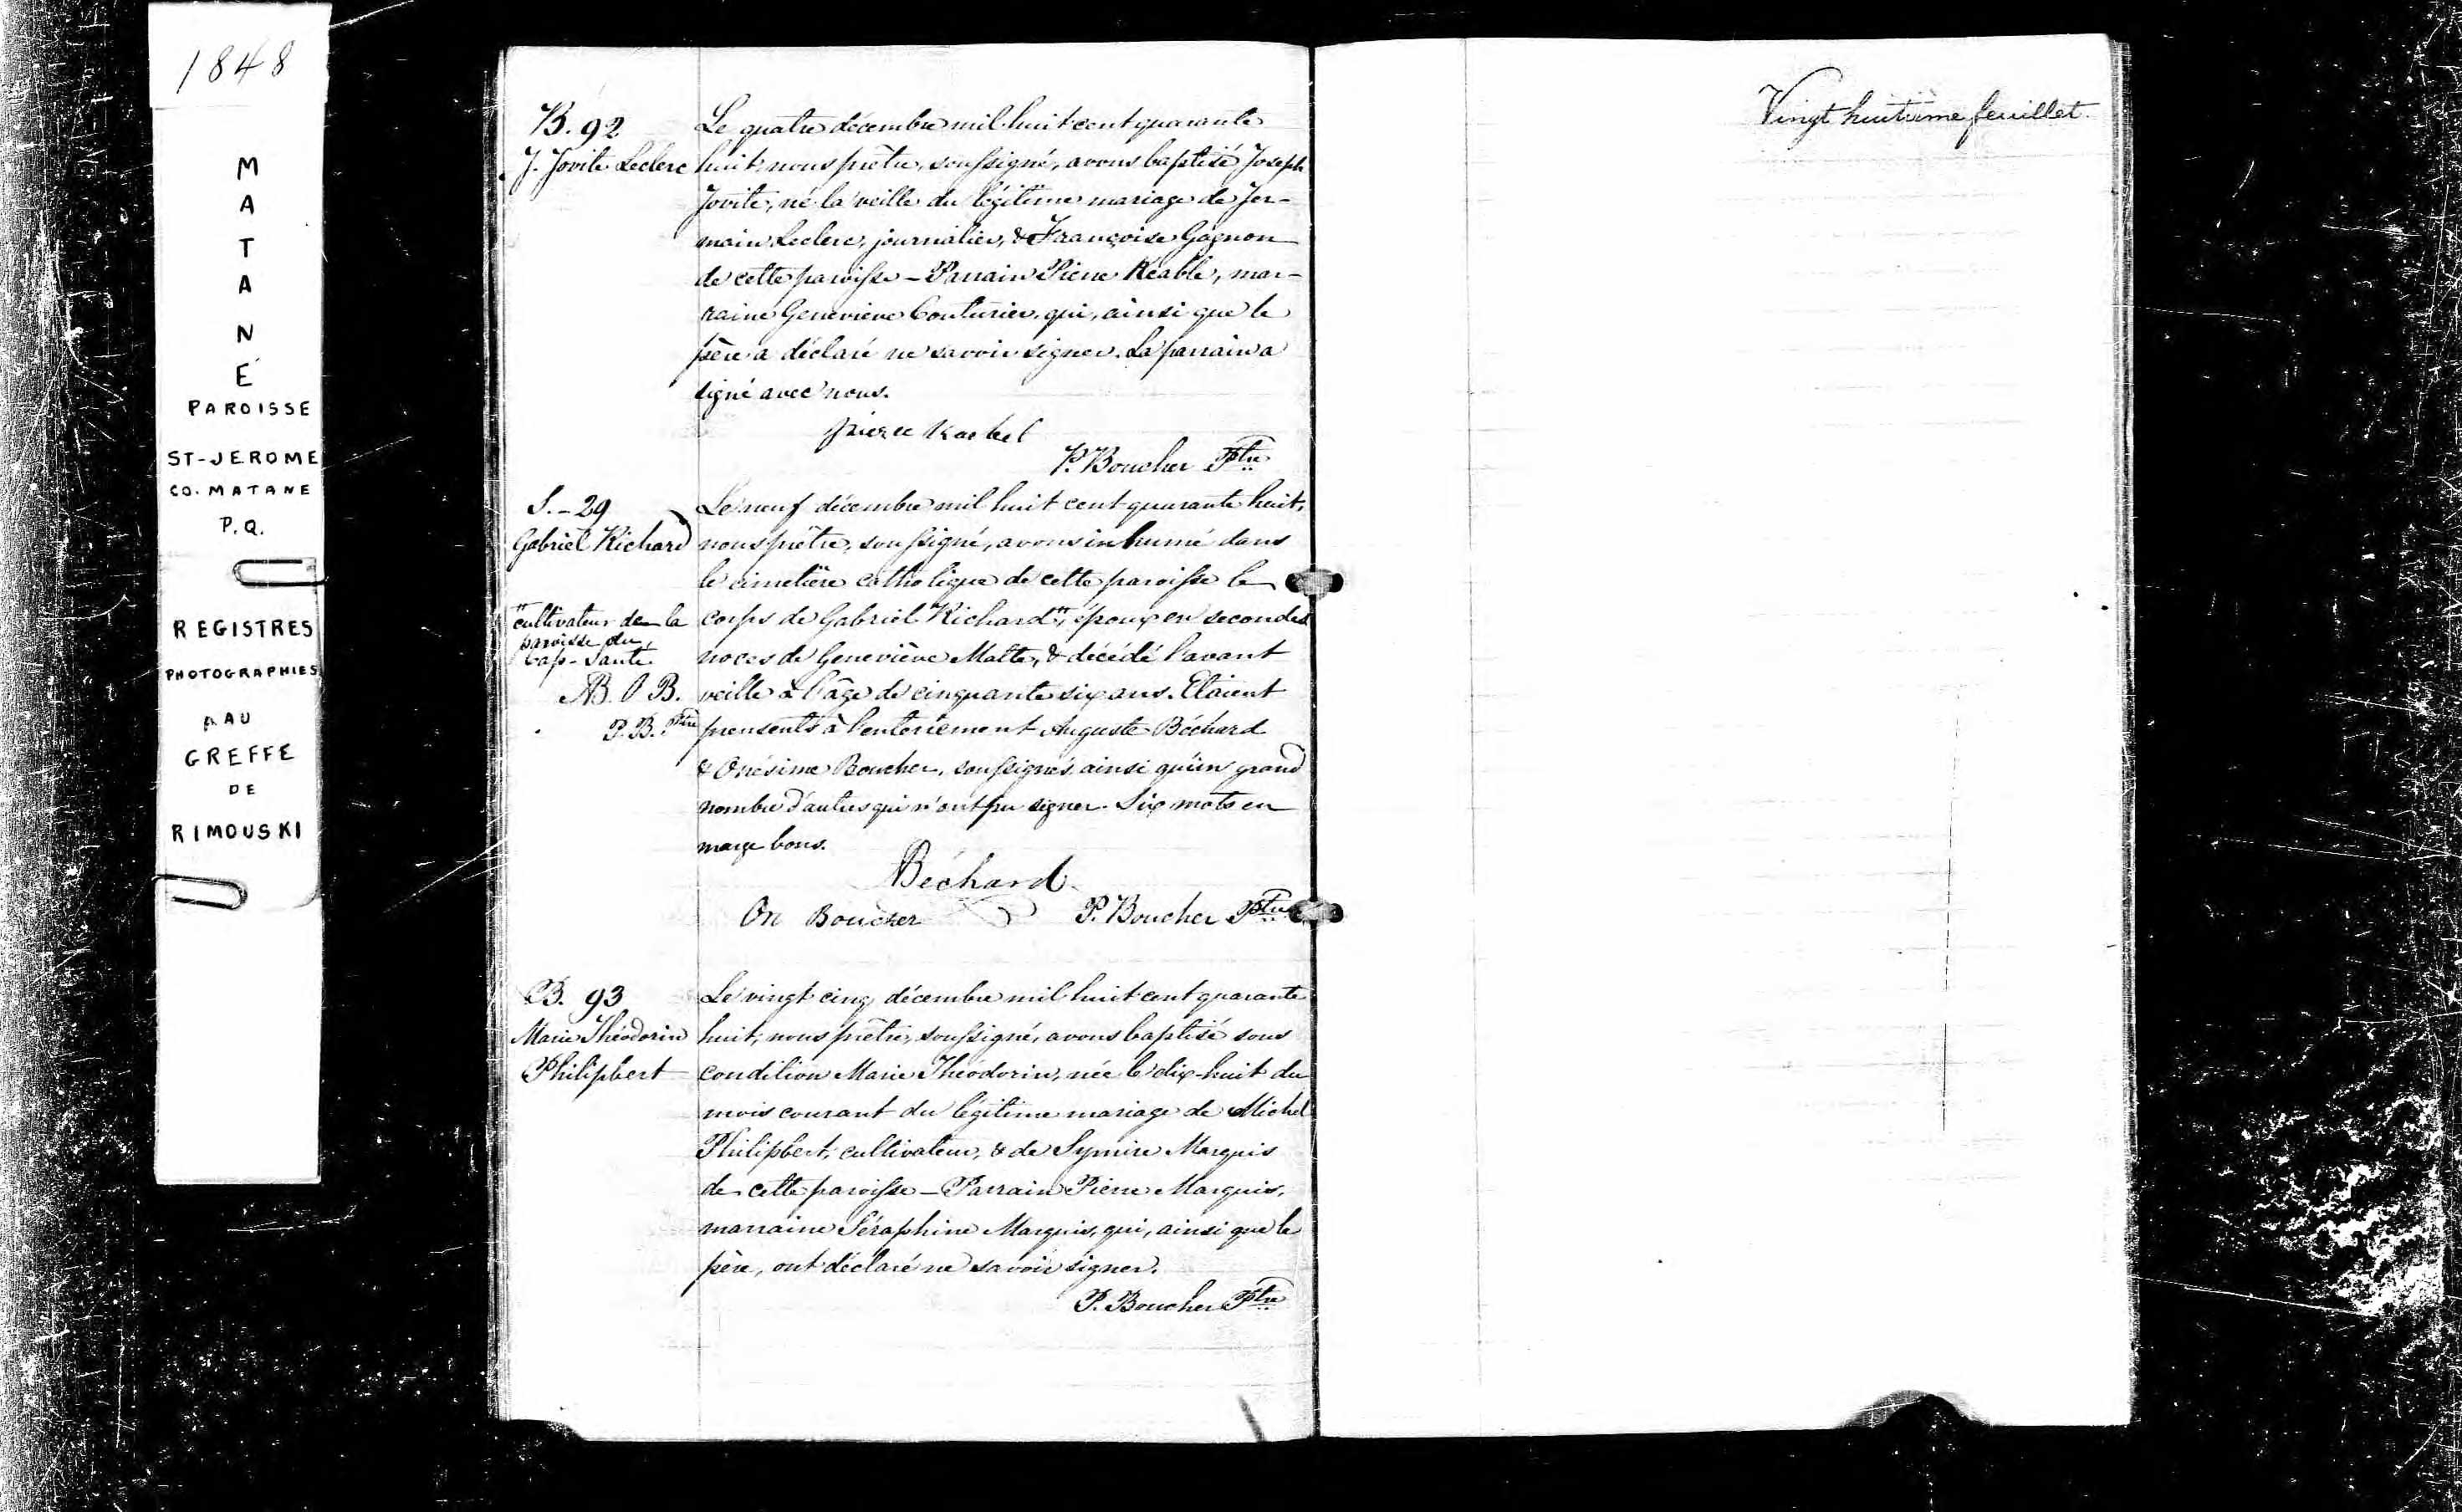 1848
MATANE
PAROISSE
ST-JEROME
CO. MATANE
P.Q.
REGISTRES
PHOTOGRAPHIES
AU
GREFFE
DE
RIMOUSKI
B. 92
J. Jovite Leclerc
Le quatre décembre mil huit cent quarante
huit, nous prêtre, soussigné, avons baptisé Joseph
Jovite, né la veille du légitime mariage de Jer-
main Leclerc, journalier, & Françoise Gagnon
de cette paroisse - Parrain Pierre Keable, mar-
raine Geneviève Couturier, qui, ainsi que le
père a déclaré ne savoir signer. Le parrain a
signé avec nous.
pierre Kaebel
P. Boucher Ptre
S. - 29
Gabriel Richard
Le neuf décembre mil huit cent quarante huit,
nous prêtre, soussigné, avons inhumé dans
le cimetière catholique de cette paroisse le
corps de Gabriel Richard", époux en secondes
noces de Geneviève Malte, & décédé l'avant
veille à l'âge de cinquante six ans. Etaient
prensents à l'enterrement Auguste Béchard
& Onésime Boucher, soussignés ainsi qu'un grand
nombre d'autres qui n'ont pu signer. Six mots en
marge bons.
"cultivateur de la
paroisse du
Cap-Santé.
AB. O B.
P. B. Ptre
Béchard
On Boucher P. Boucher Ptre
B. 93
Marie Théodorin
Philipbert
Le vingt cinq décembre mil huit cent quarante
huit, nous prêtre, soussigné, avons baptisé sous
condition Marie Théodorin, née le dix-huit du
mois courant du légitime mariage de Michel
Philipbert, cultivateur, & de Symire Marquis
de cette paroisse - Parrain Pierre Marquis,
marraine Séraphine Marquis, qui, ainsi que le
père, ont déclaré ne savoir signer.
P. Boucher Ptre
Vingt huitième feuillet.